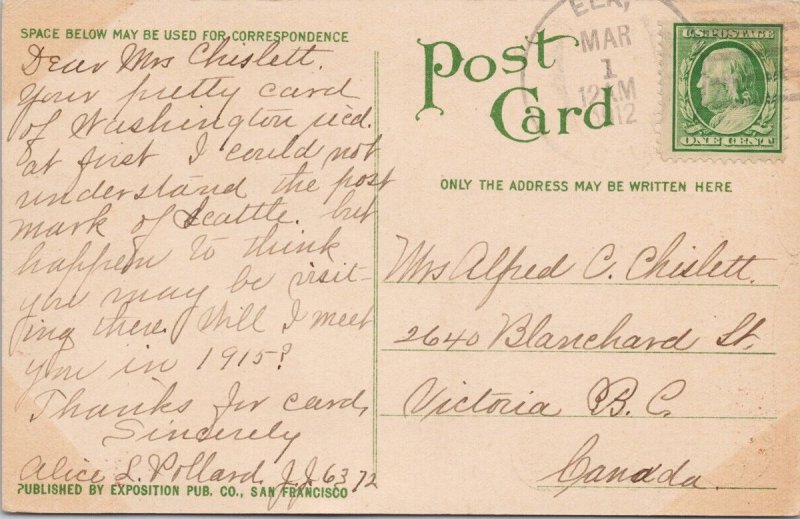 SPACE BELOW MAY BE USED FOR CORRESPONDENCE
Dear Mrs Chislett.
Your pretty card
of Washington recd.
at first I could not
understand the post
mark of Seattle. but
happen to think
you may be visit-
ing there. Will I meet
you in 1915?
Thanks for card,
Sincerely
Alice L. Pollard. J.J. 6372
PUBLISHED BY EXPOSITION PUB. CO., SAN FRANCISCO
Post
Card
ELK,
MAR
1
12 M
1912
U.S. POSTAGE
ONE CENT
ONLY THE ADDRESS MAY BE WRITTEN HERE
Mrs Alfred C. Chislett.
2640 Blanchard St.
Victoria B.C.
Canada.